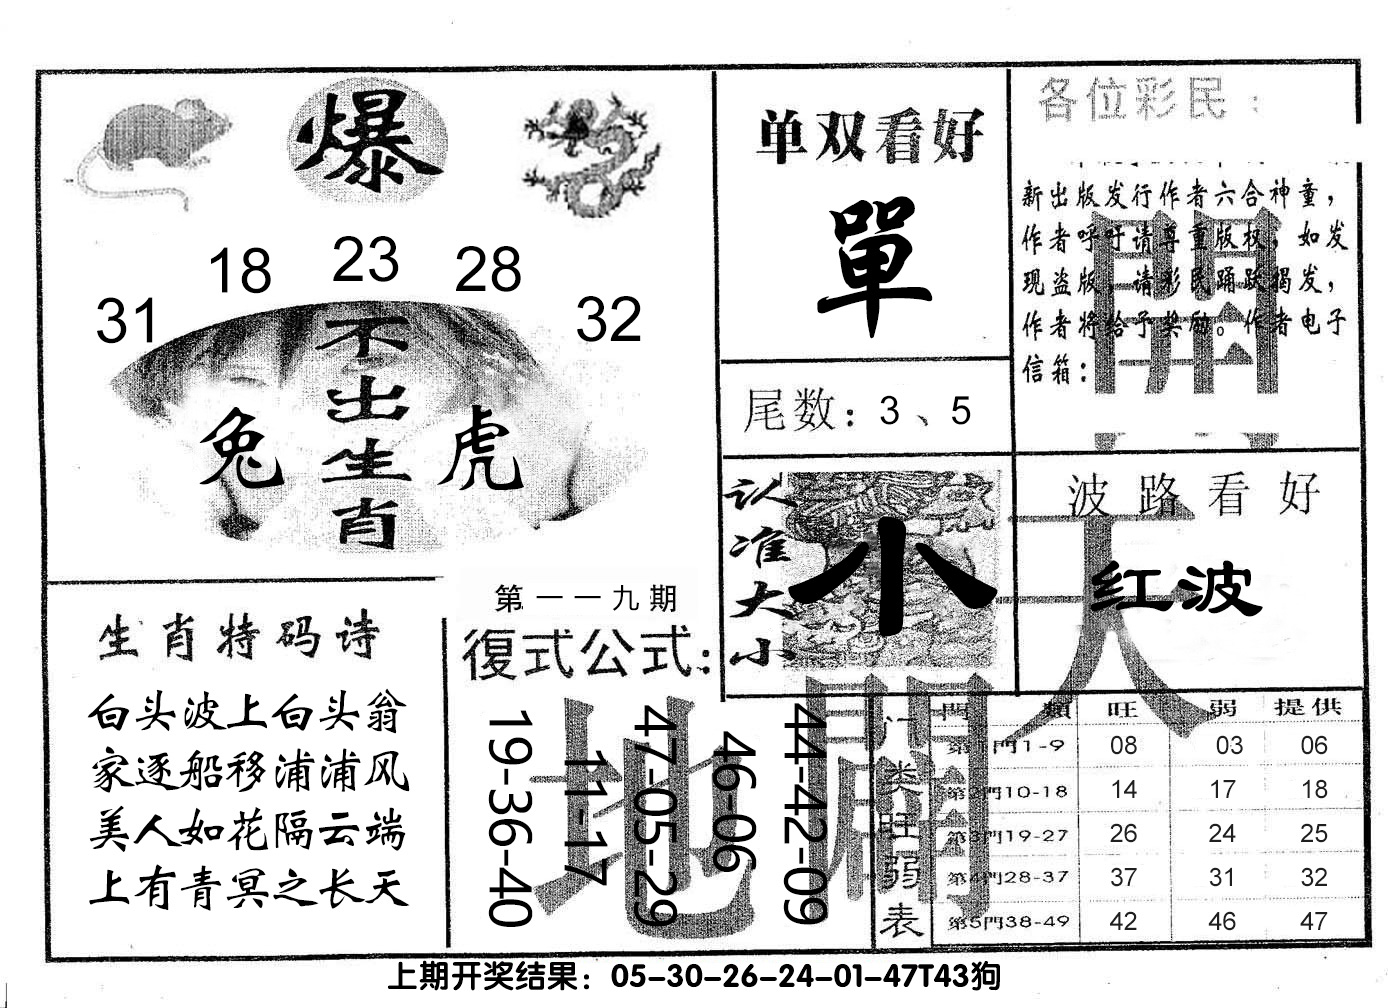 爆
18 23 28
31 32
不出生肖
兔 虎
单双看好
單
尾数：3、5
各位彩民：
新出版发行作者六合神童，
作者呼吁请尊重版权，如发
现盗版，请彩民踊跃揭发，
作者将给予奖励。作者电子
信箱：
認准大小
小
波路看好
红波
生肖特码诗
白头波上白头翁
家逐船移浦浦风
美人如花隔云端
上有青冥之长天
第一一九期
復式公式：
19-36-40
11-17
47-05-29
46-06
44-42-09
天地開門
门类旺弱表
門類 旺 弱 提供
第1門1-9 08 03 06
第2門10-18 14 17 18
第3門19-27 26 24 25
第4門28-37 37 31 32
第5門38-49 42 46 47
上期开奖结果：05-30-26-24-01-47T43狗